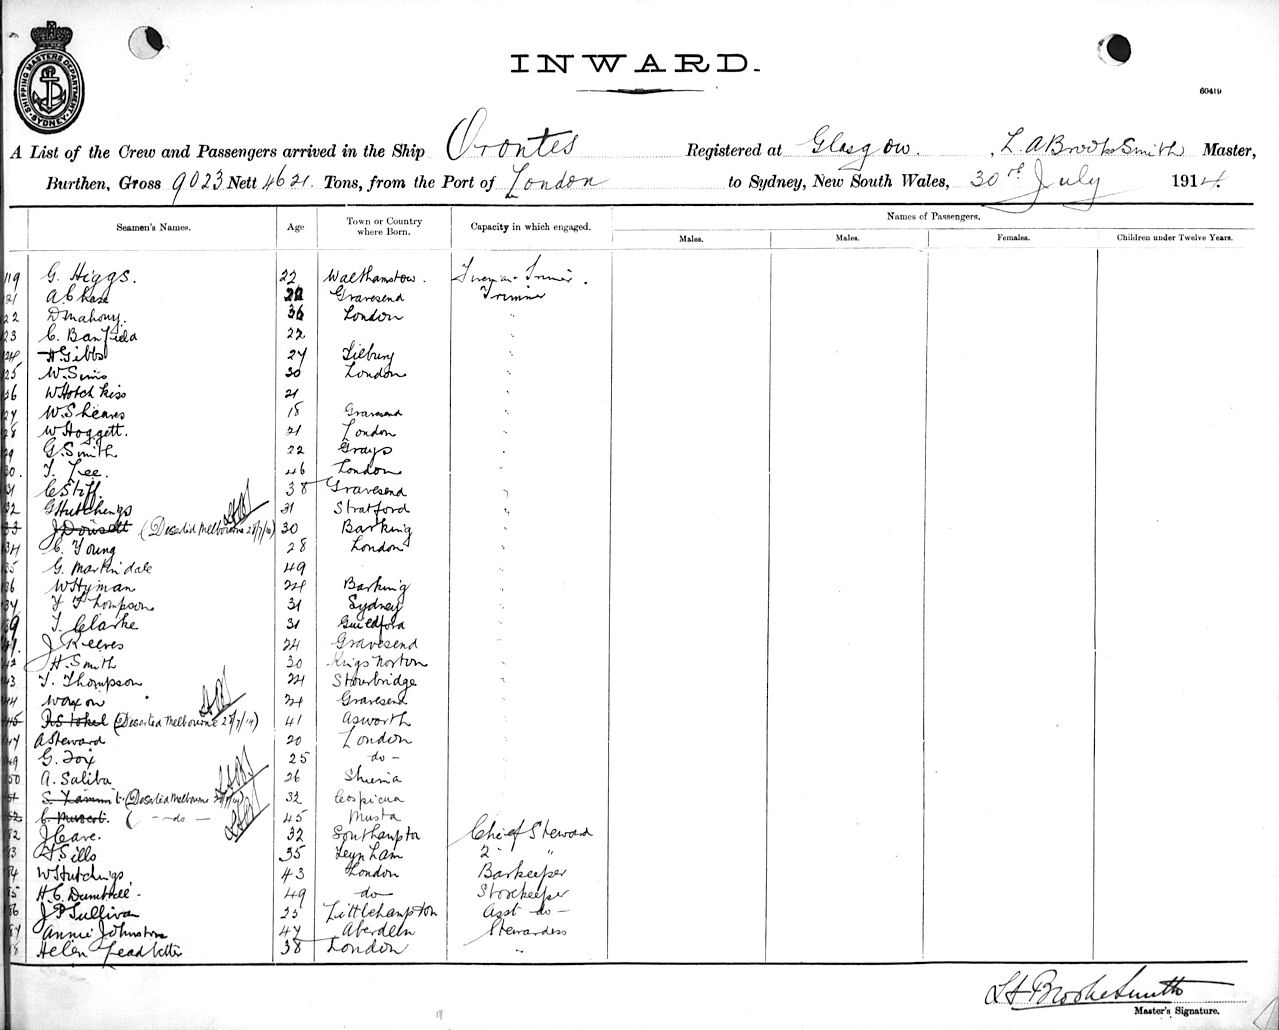 SHIPPING MASTERS DEPARTMENT SYDNEY
INWARD.
60419
A List of the Crew and Passengers arrived in the Ship Orontes Registered at Glasgow. , L. A Brooke Smith Master,
Burthen, Gross 9023 Nett 4621. Tons, from the Port of London to Sydney, New South Wales, 30th July 1914.
Names of Passengers.
Seamen's Names. Age Town or Country where Born. Capacity in which engaged. Males. Males. Females. Children under Twelve Years.
119 G. Higgs. 22 Walthamstow. Fireman Trimmer.
21 A Chase Gravesend Trimmer
22 D Mahony. 36 London "
23 C. Banfield 22 "
24 H Gibbs 27 Tilbury "
25 W. Sims 30 London "
26 W Hotchkiss 21 "
27 W Sheares 18 Gravesend "
28 W Hoggett. 21 London "
29 G. Smith 22 Grays "
30. T. Lee. 46 London "
31 C Stiff. 38 Gravesend "
32 G Hutchings 31 Stratford "
33 J Dowsett (Deserted Melbourne 28/7/14) 30 Barking "
34 C. Young 28 London "
35 G. Martindale 49 "
36 W Hyman 24 Barking "
37 F Thompson 31 Sydney "
39 T. Clarke 31 Guildford "
41. J Reeves 24 Gravesend "
42 H. Smith 30 Kings Norton "
43 T. Thompson 24 Stourbridge "
44 Gravesend "
45 (Deserted Melbourne 28/7/14) 41 Asworth "
47 A Steward 20 London "
49 G. Fox 25 -do- "
50 A. Saliba 26 "
51 S. Yammit. (Deserted Melbourne 28/7/14) 32 Cospicua "
52 C. Muscat. ( - do - 45 Musta "
82 J Cave. 32 Southampton Chief Steward
83 F Sills 35 Teynham 2 "
84 W Hutchings 43 London Barkeeper
85 H. C. Dumbell - 49 -do- Storekeeper
86 J P Sullivan 25 Littlehampton Asst -do-
87 Annie Johnstone 47 Aberdeen Stewardess
88 Helen Leadbetter 38 London "
L A Brooke Smith
Master's Signature.